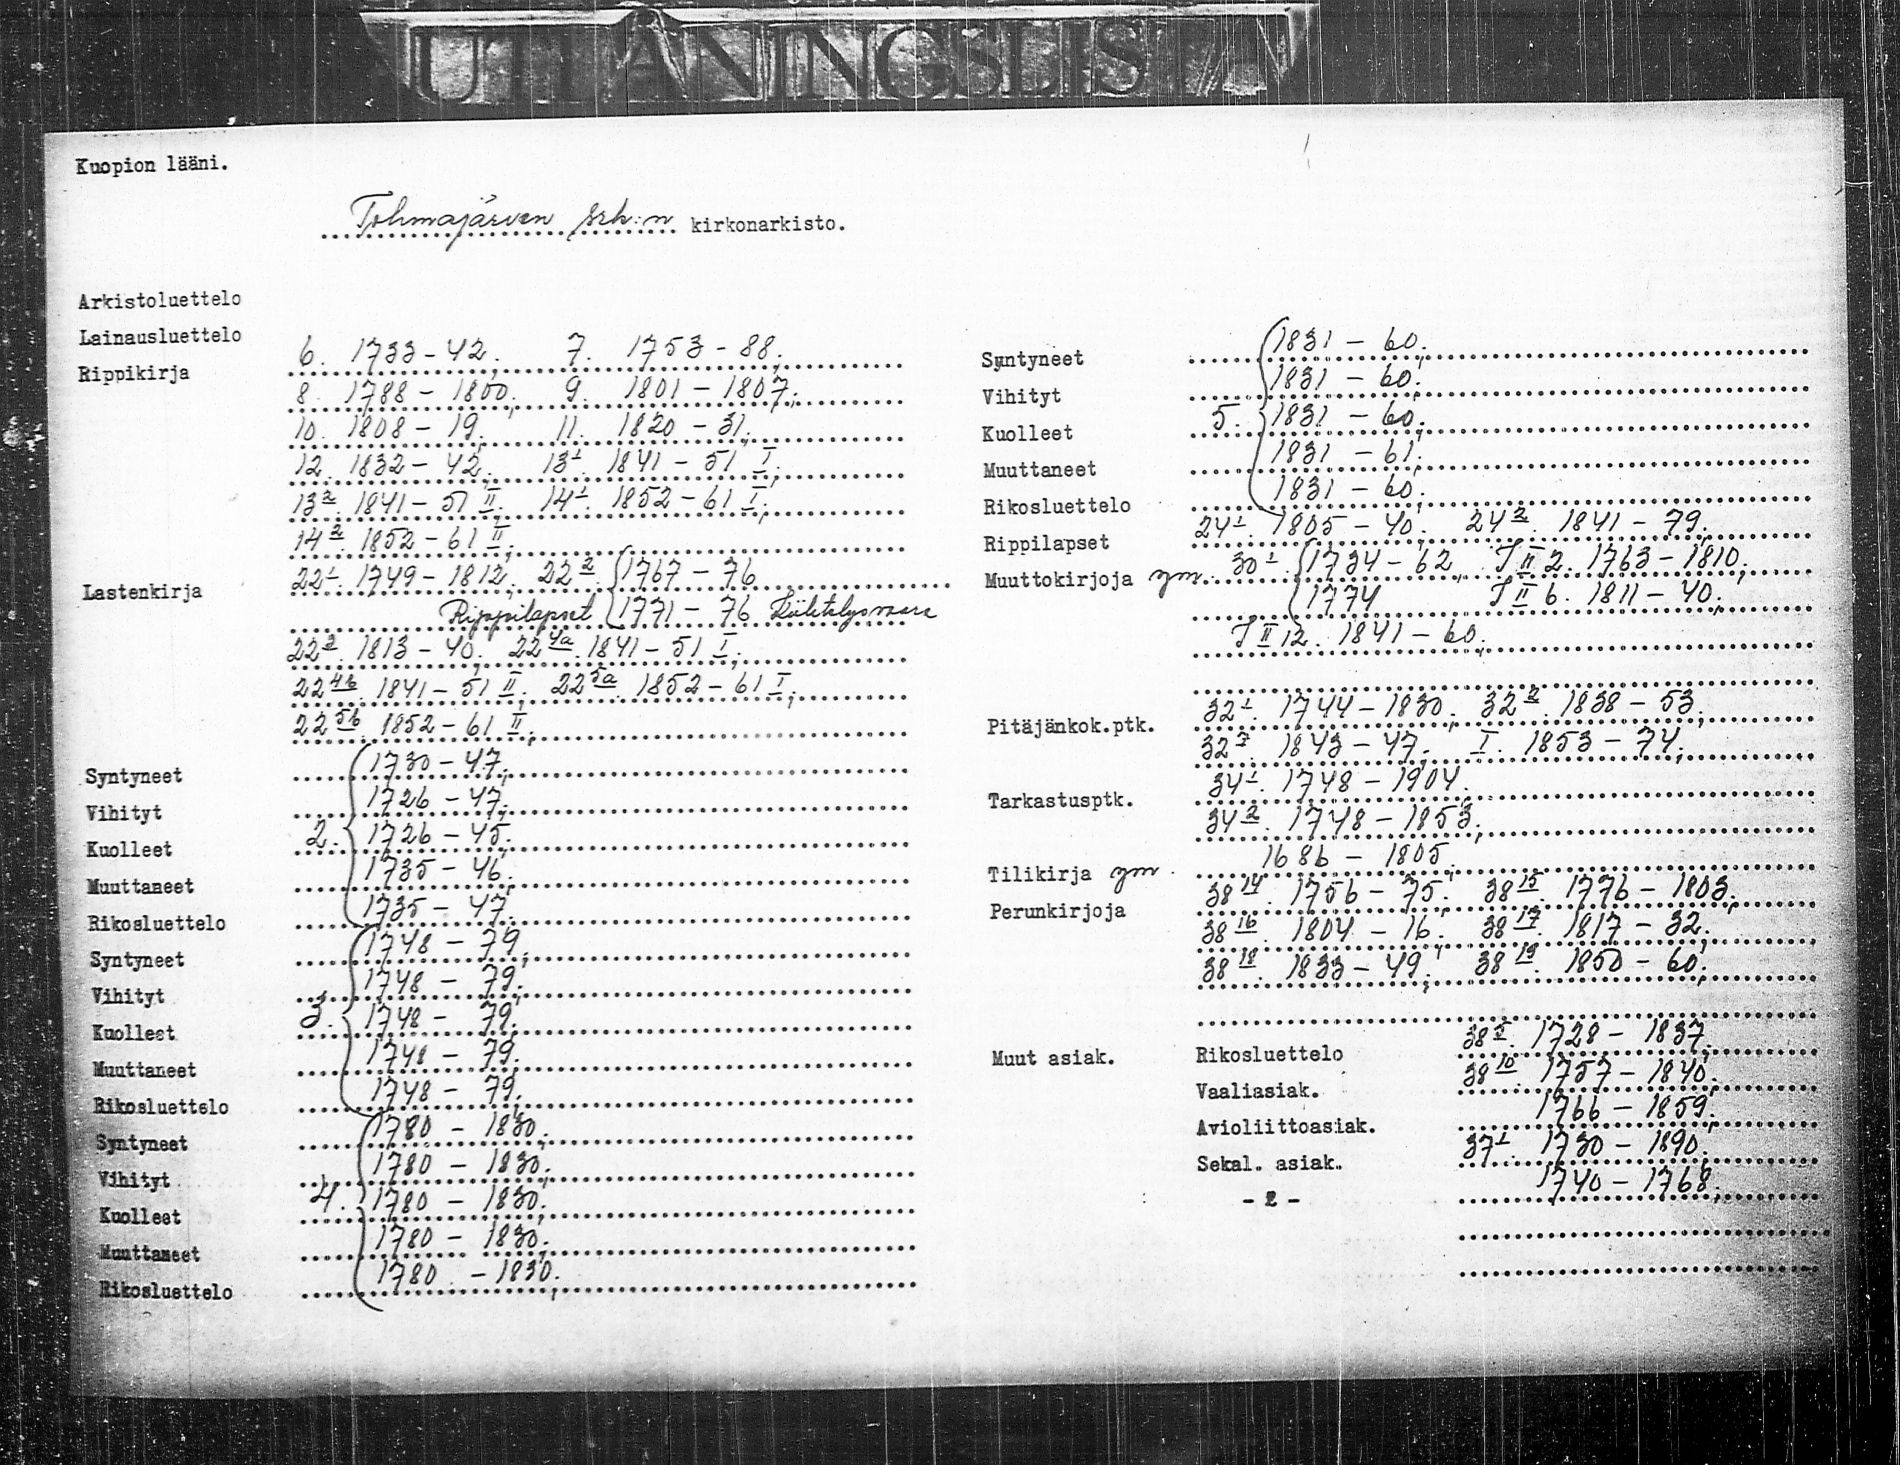 UTLÅNINGSLISTA
Kuopion lääni.
Tohmajärven srk:n kirkonarkisto.
Arkistoluettelo
Lainausluettelo
Rippikirja 6. 1733-42; 7. 1753-88;
8. 1788-1800; 9. 1801-1807;
10. 1808-19; 11. 1820-31;
12. 1832-42; 13¹. 1841-51 I;
13². 1841-51 II; 14¹. 1852-61 I;
14². 1852-61 II;
Lastenkirja 22¹. 1749-1812; 22². 1767-76
Rippilapset 1771-76 Kiihtelysvaara
22³. 1813-40. 22⁴ᵃ. 1841-51 I;
22⁴ᵇ. 1841-51 II; 22⁵ᵃ. 1852-61 I;
22⁵ᵇ. 1852-61 II;
Syntyneet 1730-47;
Vihityt 1726-47;
Kuolleet 2. 1726-45;
Muuttaneet 1735-46;
Rikosluettelo 1735-47;
Syntyneet 1748-79;
Vihityt 1748-79;
Kuolleet 3. 1748-79;
Muuttaneet 1748-79;
Rikosluettelo 1748-79;
Syntyneet 1780-1830;
Vihityt 1780-1830;
Kuolleet 4. 1780-1830;
Muuttaneet 1780-1830;
Rikosluettelo 1780-1830;
Syntyneet 1831-60;
Vihityt 1831-60;
Kuolleet 5. 1831-60;
Muuttaneet 1831-61;
Rikosluettelo 1831-60;
Rippilapset 24¹. 1805-40; 24². 1841-79;
Muuttokirjoja ym. 30¹. 1734-62; I II 2. 1763-1810;
1774 I II 6. 1811-40;
I II 12. 1841-60.
Pitäjänkok.ptk. 32¹. 1744-1830; 32². 1838-53;
32³. 1843-47; I. 1853-74;
Tarkastusptk. 34¹. 1748-1904.
34². 1748-1853;
Tilikirja ym. 1686-1805;
Perunkirjoja 38¹⁴. 1756-75; 38¹⁵. 1776-1803;
38¹⁶. 1804-16; 38¹⁷. 1817-32;
38¹⁸. 1833-49; 38¹⁹. 1850-60;
Muut asiak. Rikosluettelo 38⁵. 1728-1837.
Vaaliasiak. 38¹⁰. 1757-1840;
Avioliittoasiak. 1766-1859;
Sekal. asiak. 37¹. 1730-1890;
- 2 - 1740-1768;